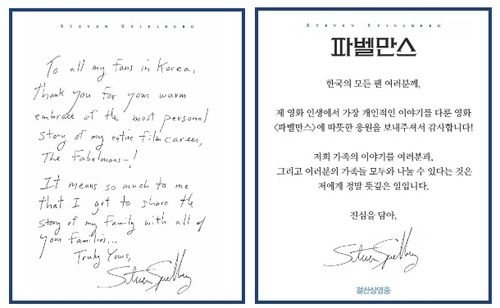 STEVEN SPIELBERG
To all my fans in Korea,
Thank you for your warm
embrace of the most personal
story of my entire film career,
The Fabelmans-!
It means so much to me
that I got to share the
story of my family with all of
your families...
Truly Yours,
Steven Spielberg
STEVEN SPIELBERG
파벨만스
한국의 모든 팬 여러분께,
제 영화 인생에서 가장 개인적인 이야기를 다룬 영화
<파벨만스>에 따뜻한 응원을 보내주셔서 감사합니다!
저희 가족의 이야기를 여러분과,
그리고 여러분의 가족들 모두와 나눌 수 있다는 것은
저에게 정말 뜻깊은 일입니다.
진심을 담아,
Steven Spielberg
절찬상영중